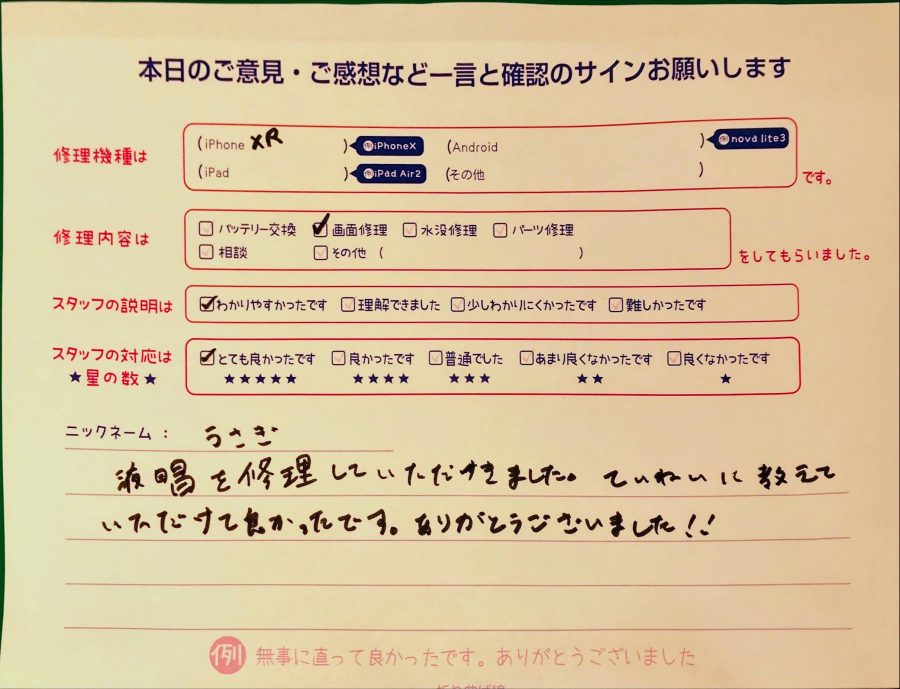 本日のご意見・ご感想など一言と確認のサインお願いします
修理機種は (iPhone XR ) 例iPhoneX (Android ) 例nova lite3
(iPad ) 例iPad Air2 (その他 ) です。
修理内容は バッテリー交換 画面修理 水没修理 パーツ修理
相談 その他 ( ) をしてもらいました。
スタッフの説明は わかりやすかったです 理解できました 少しわかりにくかったです 難しかったです
スタッフの対応は とても良かったです 良かったです 普通でした あまり良くなかったです 良くなかったです
★星の数★ ★★★★★ ★★★★ ★★★ ★★ ★
ニックネーム： うさぎ
液晶を修理していただけきました。ていねいに教えて
いただけて良かったです。ありがとうございました!!
例 無事に直って良かったです。ありがとうございました